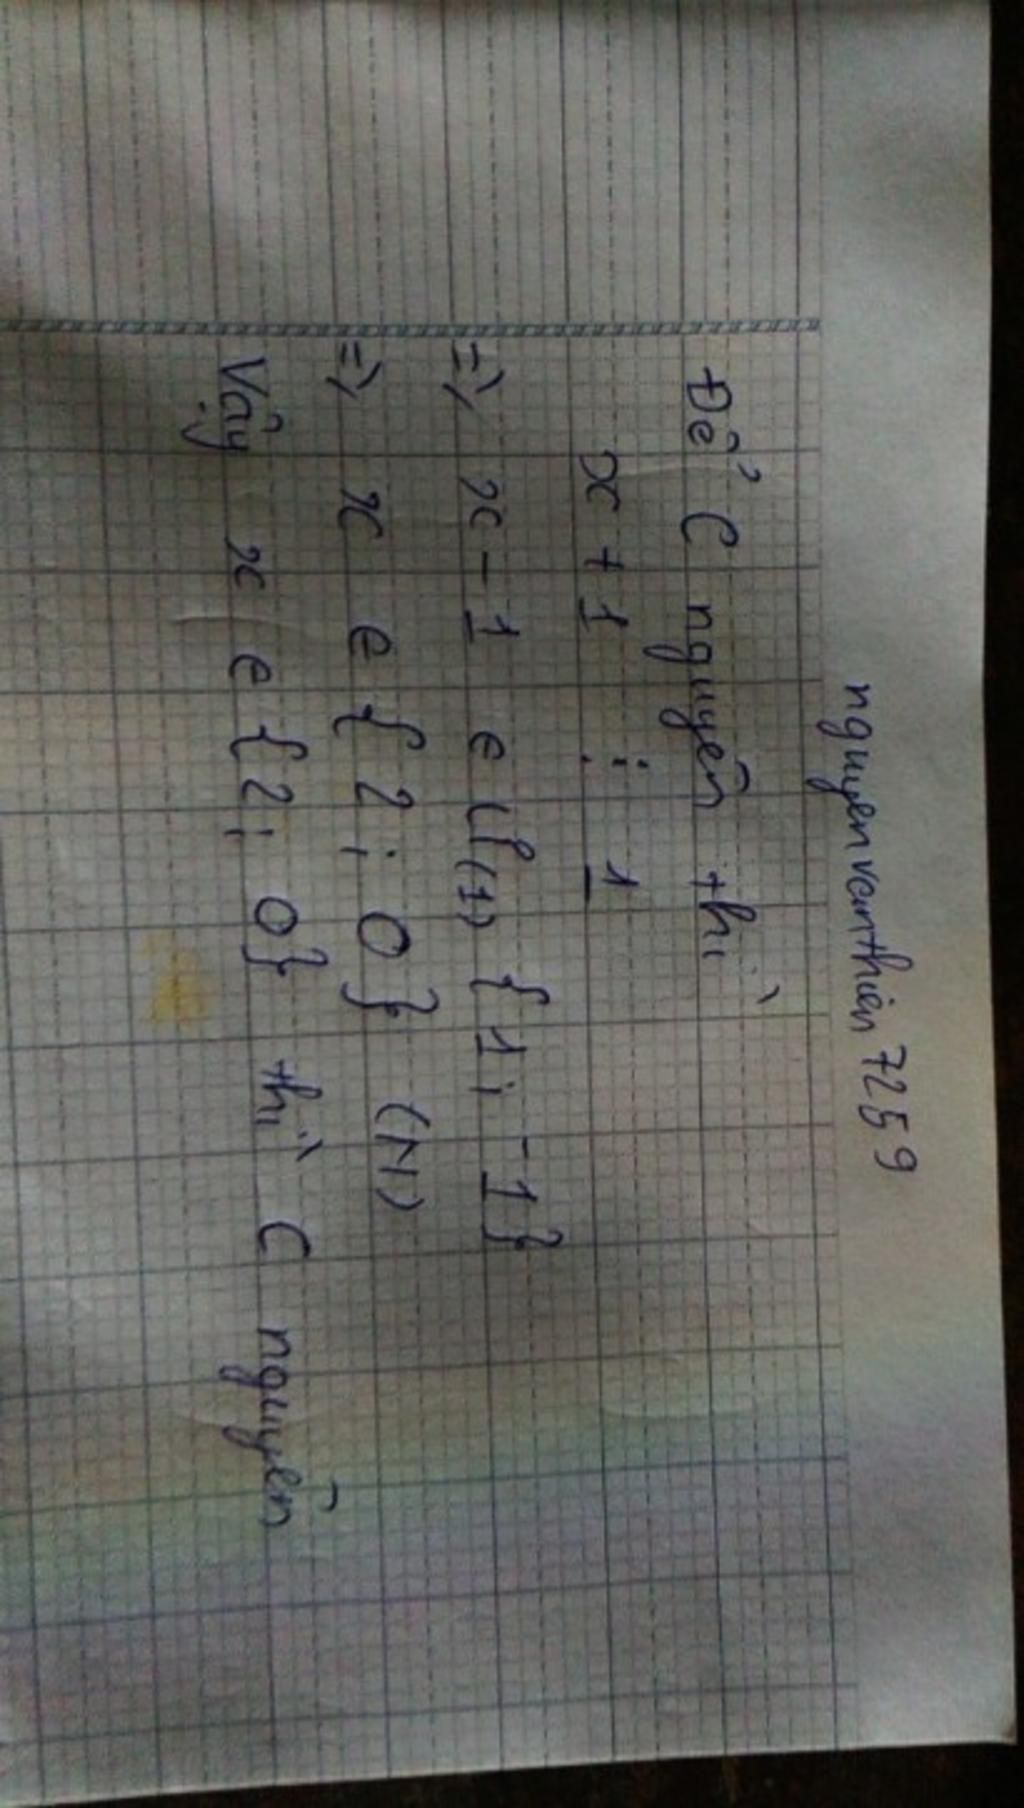 nguyenvanthien7259
Để C nguyên thì
x + 1 ⋮ 1
=> x - 1 e Ư(1) {1; -1}
=> x e {2; 0} (N)
Vậy x e {2; 0} thì C nguyên